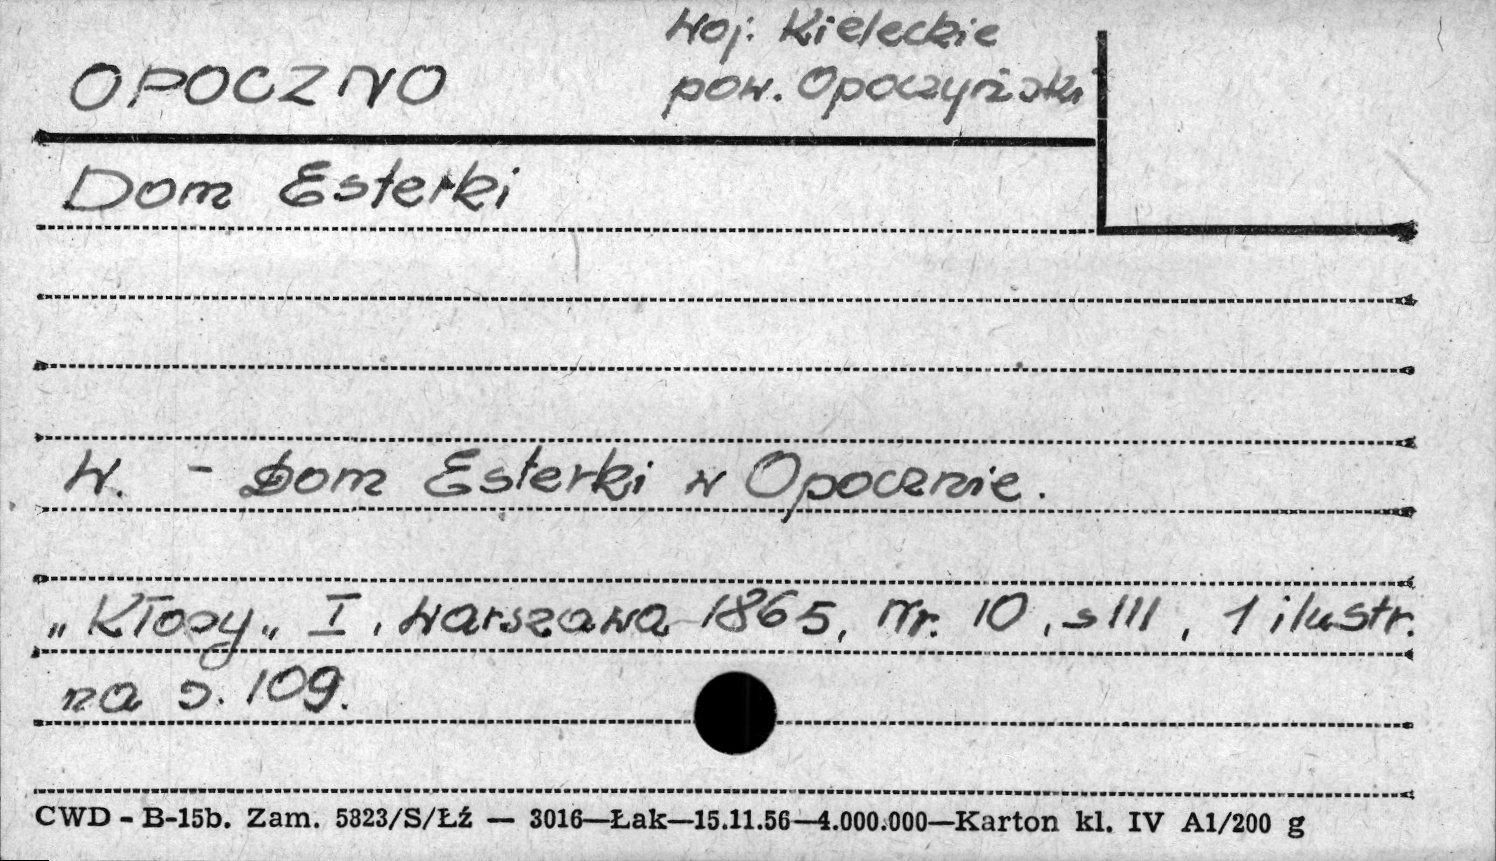 OPOCZNO
woj: Kieleckie
pow. Opoczyński
Dom Esterki
W. - Dom Esterki w Opocznie.
„Kłosy„ I, Warszawa 1865, Nr. 10, s 111, 1 ilustr.
na s. 109.
CWD - B-15b. Zam. 5823/S/Łź — 3016—Łak—15.11.56—4.000.000—Karton kl. IV A1/200 g